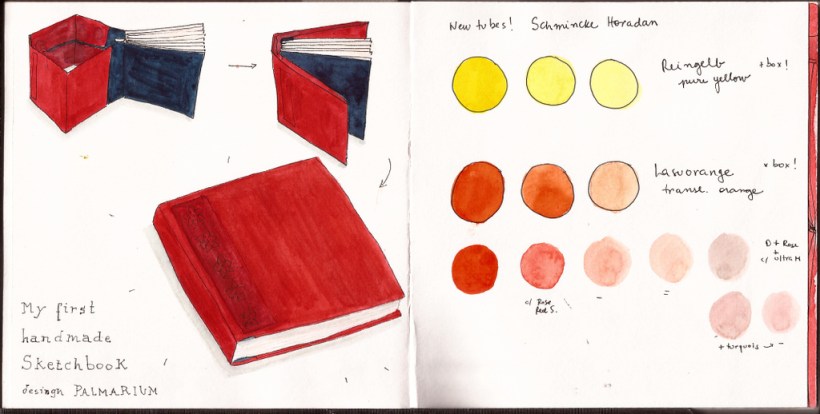 My first
handmade
Sketchbook
desingn PALMARIUM
New tubes! Schmincke Horadan
Reingelb
pure yellow
+ box!
Lasurorange
transl. orange
+ box!
c/ Rose
Red S.
–
=
O + Rose
+
c/ ultra M
+ turquois → –